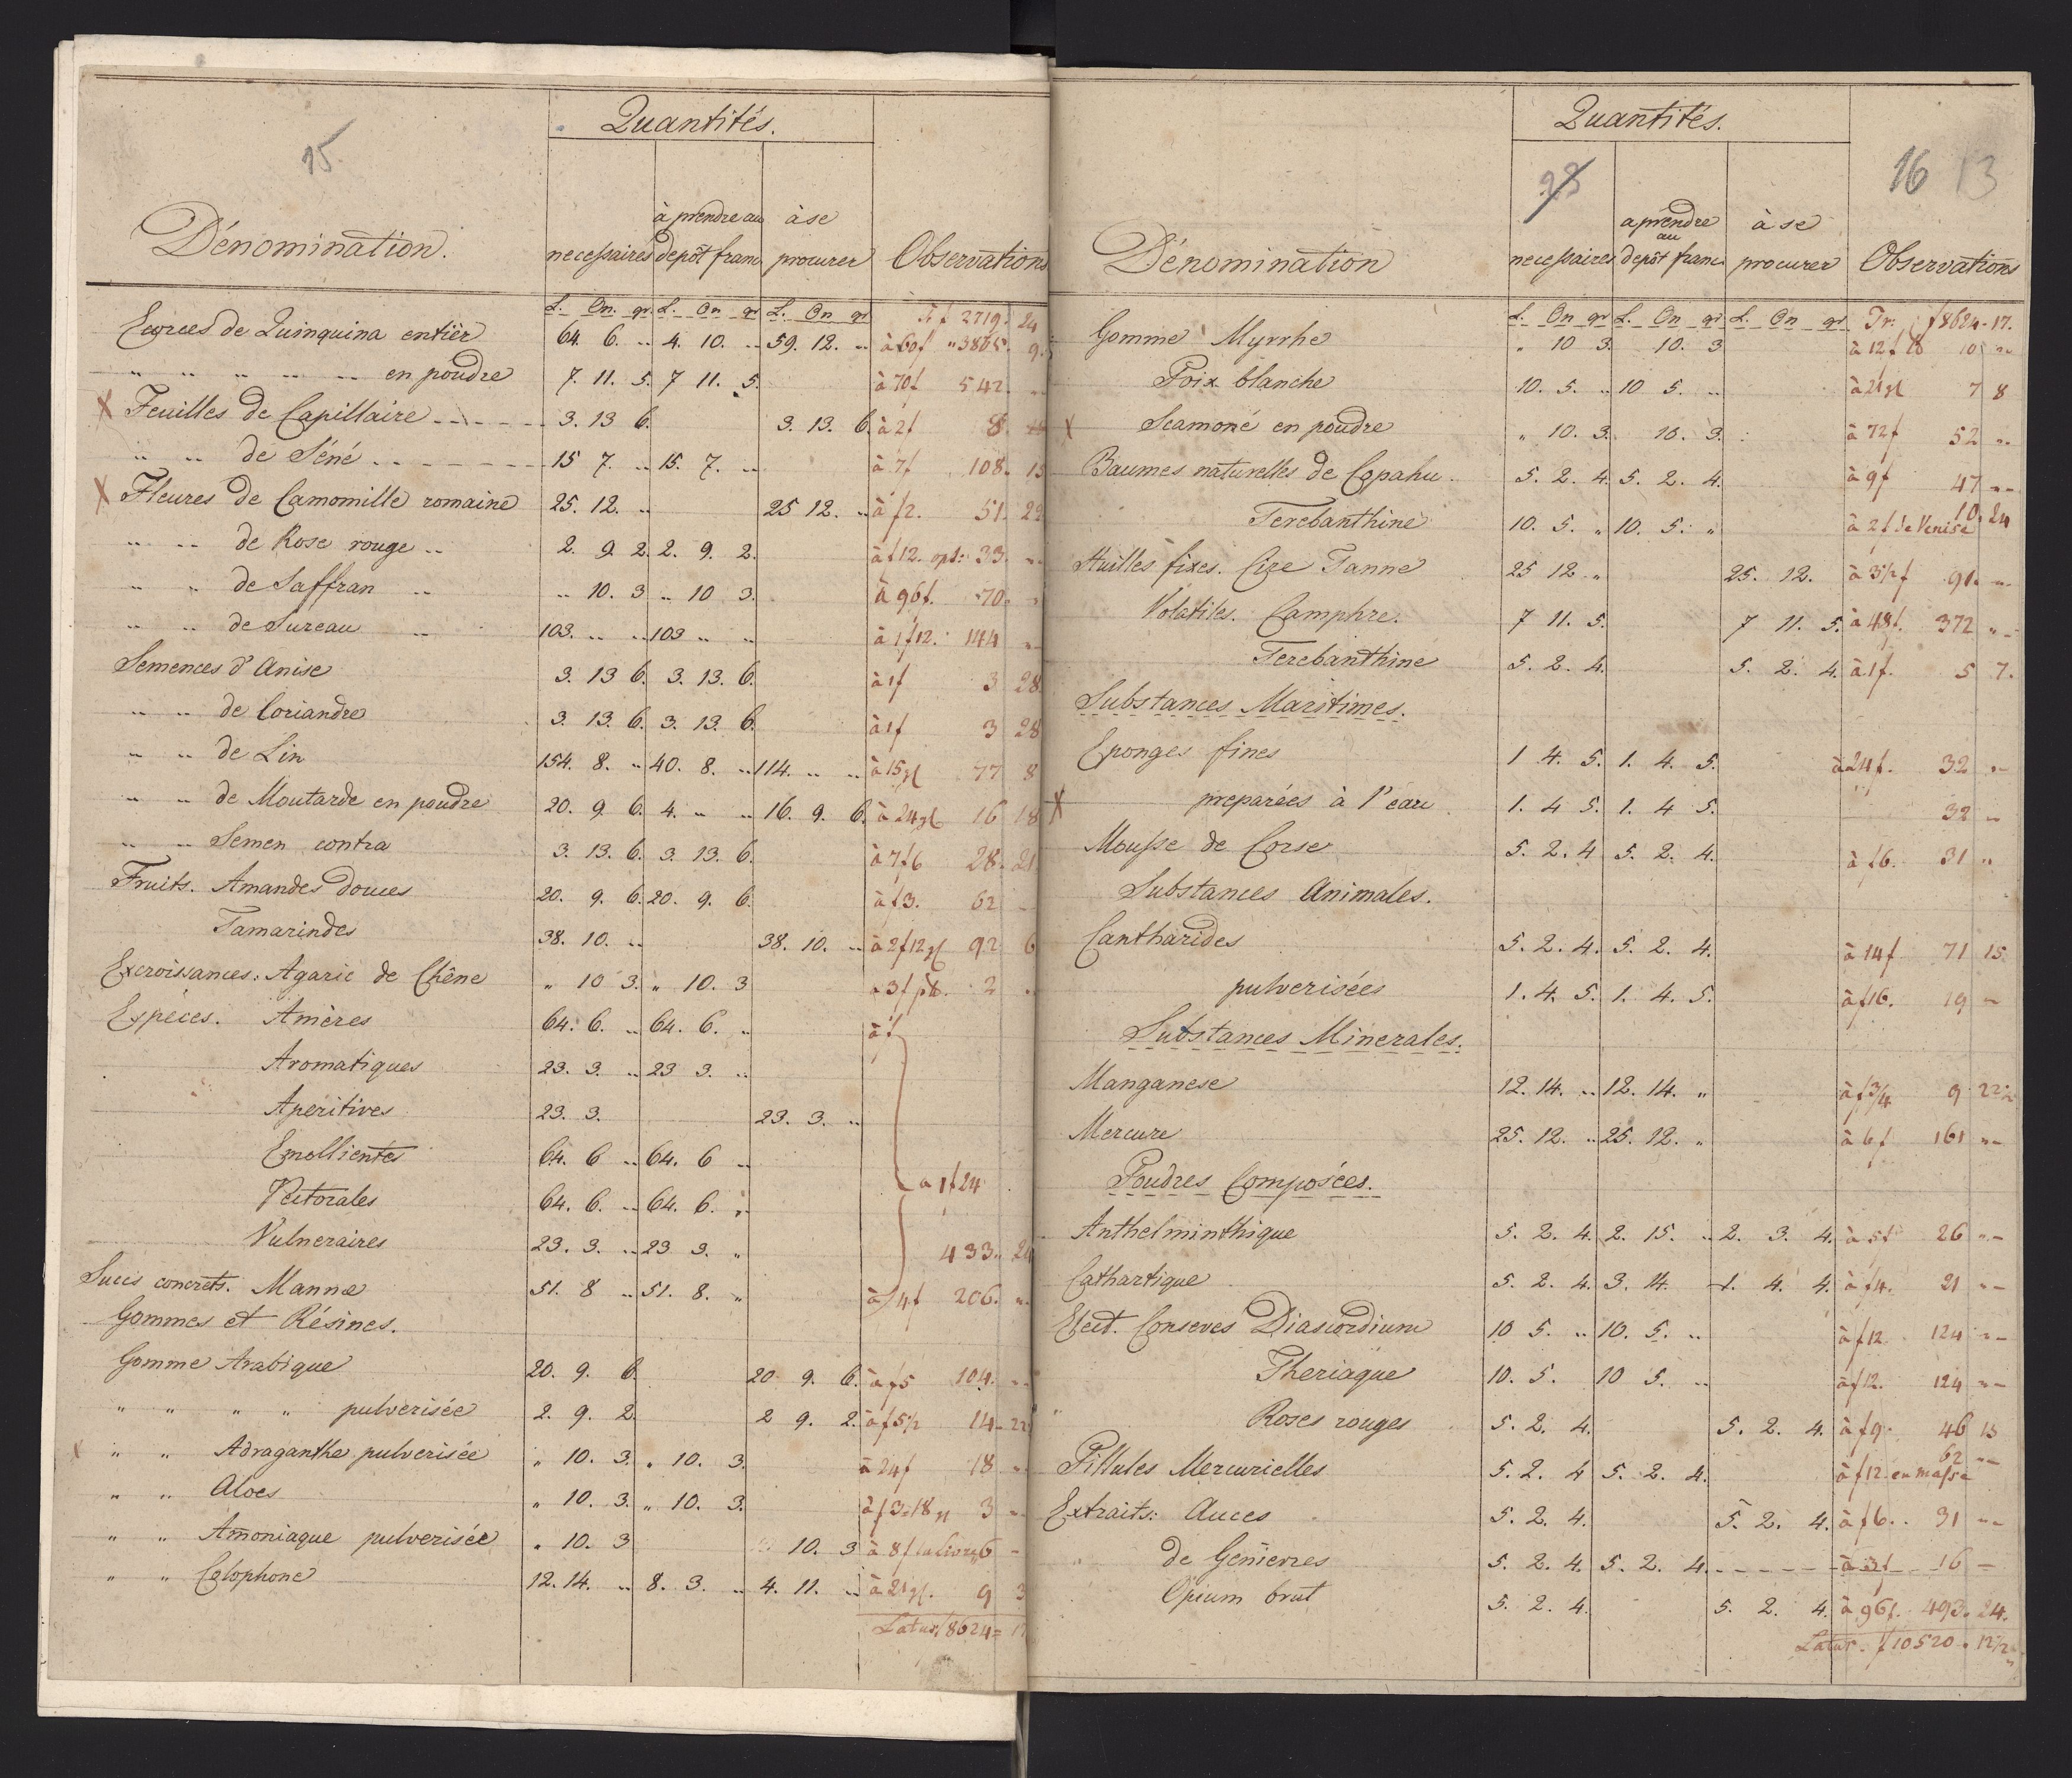 15
Quantités.
Dénomination.
necessaires
à prendre au depôt franc.
à se procurer
Observations
L. On. gr. L. On gr L. On gr
Tr f 2719. 24
Ecorces de Quinquina entiér 64. 6. .. 4. 10. .. 59. 12. .. à 60f " 3865. 9.
" " " " " en poudre 7. 11. 5. 7 11. 5. à 70f 542. ..
X Feuilles de Capillaire 3. 13 6. 3. 13. 6. à 2f 8.
" " de Séné 15 7. .. 15. 7. .. à 7f 108. 15
X Fleures de Camomille romaine 25. 12. .. 25 12. .. à f2. 51. 22
" " de Rose rouge .. 2. 9. 2. 2. 9. 2. à f12. opt: 33. ..
" " de Saffran .. .. 10. 3 .. 10 3. à 96f. 70.
" " de Sureau .. 103. .. .. 103 .. .. à 1f12. 144 ..
Semences d'Anise 3. 13 6. 3. 13. 6. à 1f 3 28.
" " de Coriandre 3. 13. 6. 3. 13. 6. à 1f 3 28
" " de Lin 154. 8. .. 40. 8. .. 114. .. .. à 15gl 77 8
" " de Moutarde en poudre 20. 9. 6. 4. .. .. 16. 9. 6. à 24gl 16 18
" " Semen contra 3. 13. 6. 3. 13. 6. à 7f6 28. 21
Fruits. Amandes douces 20. 9. 6. 20. 9. 6. à f3. 62
Tamarindes 38. 10. .. 38. 10. .. à 2f12gl 92 6
Excroissances: Agaric de Chêne " 10 3. " 10. 3 à 3f 2 ..
Espèces. Amères 64. 6. .. 64. 6. .. à f
Aromatiques 23. 3. .. 23 3. ..
Apéritives 23. 3. 23. 3. ..
Emollientes 64. 6 .. 64. 6 ..
Pectorales 64. 6. .. 64. 6. .. à 1f24
Vulneraires 23. 3. .. 23 3. " 433. 24
Succs concrets. Manna 51. 8 .. 51. 8. " à 4f 206. ..
Gommes et Résines.
Gomme Arabique 20. 9. 6. 20 9. 6. à f5 104. ..
" " " " pulverisée 2. 9. 2. 2 9. 2. à f5½ 14 - 22
X " " Adraganthe pulverisée " 10. 3. " 10. 3. à 24f 18 ..
" " Aloes " 10. 3. " 10. 3. à f3=18 3 ..
" " Amoniaque pulverisée " 10. 3 10. 3 à 8f la livre 6 -
" " Colophone 12. 14. .. 8. 3. .. 4. 11. .. à 21gl. 9 3
Latus f 8624= 17
16 13
23
Quantités.
Dénomination
necessaires
a prendre au depôt franc.
à se procurer
Observations
L. On gr L. On gr L. On gr Tr. f 8624 - 17.
Gomme Myrrhe " 10 3. 10. 3 à 12f 10 ..
Poix blanche 10. 5. .. 10 5. .. à 21gl 7 8
X Scamoné en poudre " 10. 3. 10. 3. à 72f 52 ..
Baumes naturelles de Copahu. 5. 2. 4. 5. 2. 4. à 9f 47 ..
Terebanthine 10. 5. " 10. 5. " à 2f de Venise 10. 24
Huilles fixes. Cire Janne 25 12 " 25. 12. à 3½f 91. ..
Volatiles. Camphre. 7 11. 5. 7 11. 5. à 48f. 372 ..
Terebanthine 5. 2. 4. 5. 2. 4. à 1f. 5 7.
Substances Maritimes.
Eponges fines 1 4. 5. 1. 4. 5. à 24f. 32 ..
X preparées à l'eau 1. 4 5. 1. 4 5. 32 ..
Mousse de Corse 5. 2. 4 5. 2. 4. à f6. 31 ..
Substances Animales.
Cantharides 5. 2. 4. 5. 2. 4. à 14f 71 15.
pulverisées 1. 4. 5. 1. 4. 5. à f16. 19 -
Substances Minerales.
Manganese 12. 14. .. 12. 14. " à f¾ 9 22½
Mercure 25. 12. .. 25. 12. " à 6f 161 ..
Poudres Composées.
Anthelminthique 5. 2. 4. 2. 15. .. 2. 3. 4. à 5f 26 ..
Cathartique 5. 2. 4. 3. 14. 1. 4 4. à f4. 21 ..
Elect. Conseves Diascordium 10 5. .. 10. 5. .. à f12. 124 ..
Theriaque 10. 5. 10 5. .. à f12. 124 ..
" Roses rouges 5. 2. 4. 5. 2. 4. à f9. 46 13
Pillules Mercurielles 5. 2. 4 5. 2. 4. à f12. en masse 62 ..
Extraits: Auces 5. 2. 4. 5. 2. 4. à f6.. 31 ..
" de Genievres 5. 2. 4. 5. 2. 4. à 3f 16 -
Opium brut 5. 2. 4. 5. 2. 4. à 96f. 493. 24.
Latus. f 10520. 12½